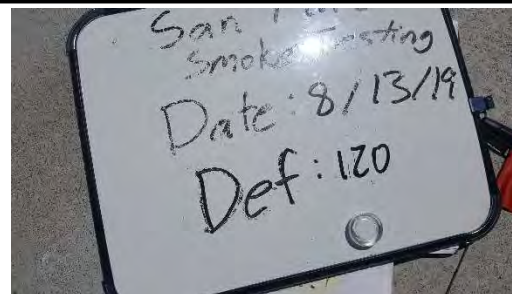 San
Smoke Testing
Date: 8/13/19
Def: 120